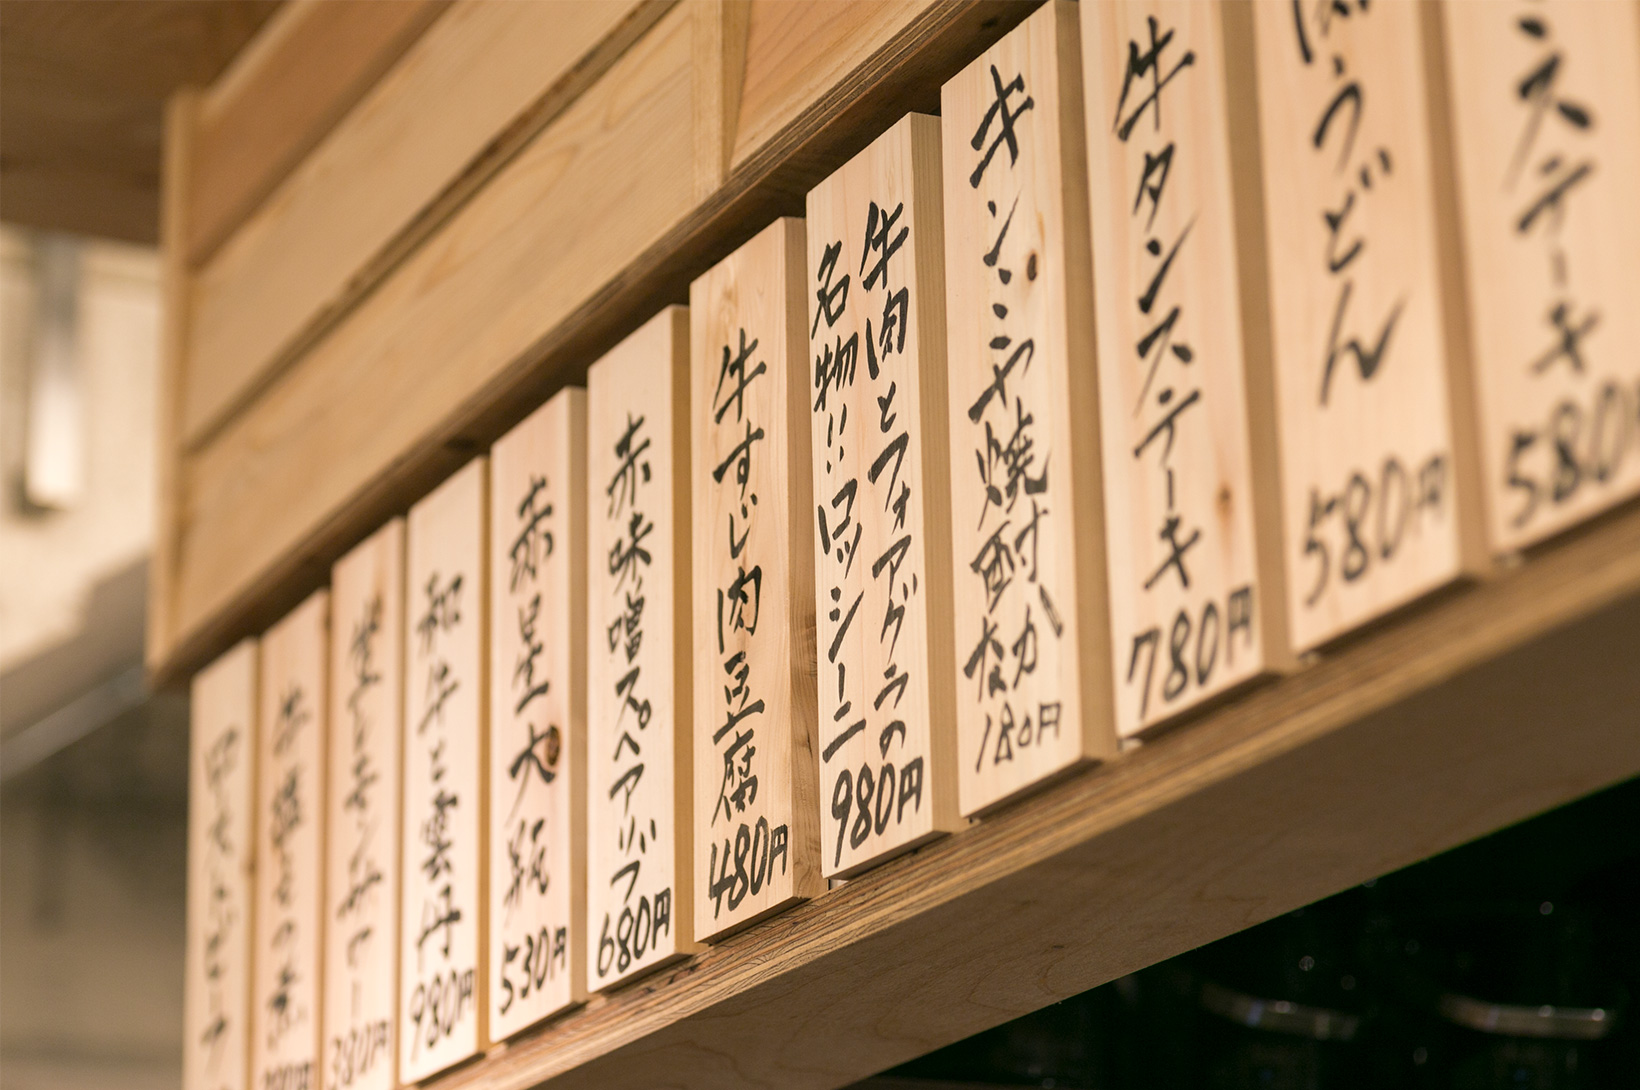 ステーキ
580
うどん
580円
牛タンステーキ
780円
キンミヤ焼酎、なか
180円
牛肉とフォアグラの
名物!!ロッシーニ
980円
牛すじ肉豆腐
480円
赤味噌スペアリブ
680円
赤星大瓶
530円
和牛と雲丹
980円
380円